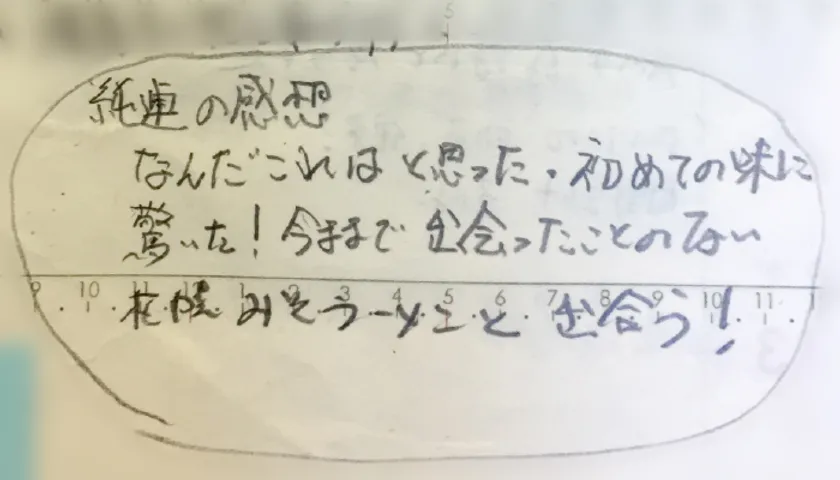 5
純連の感想
なんだこれはと思った.初めての味に
驚いた!今まで出会ったことのない
9 10 11 12 1 2 3 4 5 6 7 8 9 10 11 1
札幌みそラーメンと出会う!